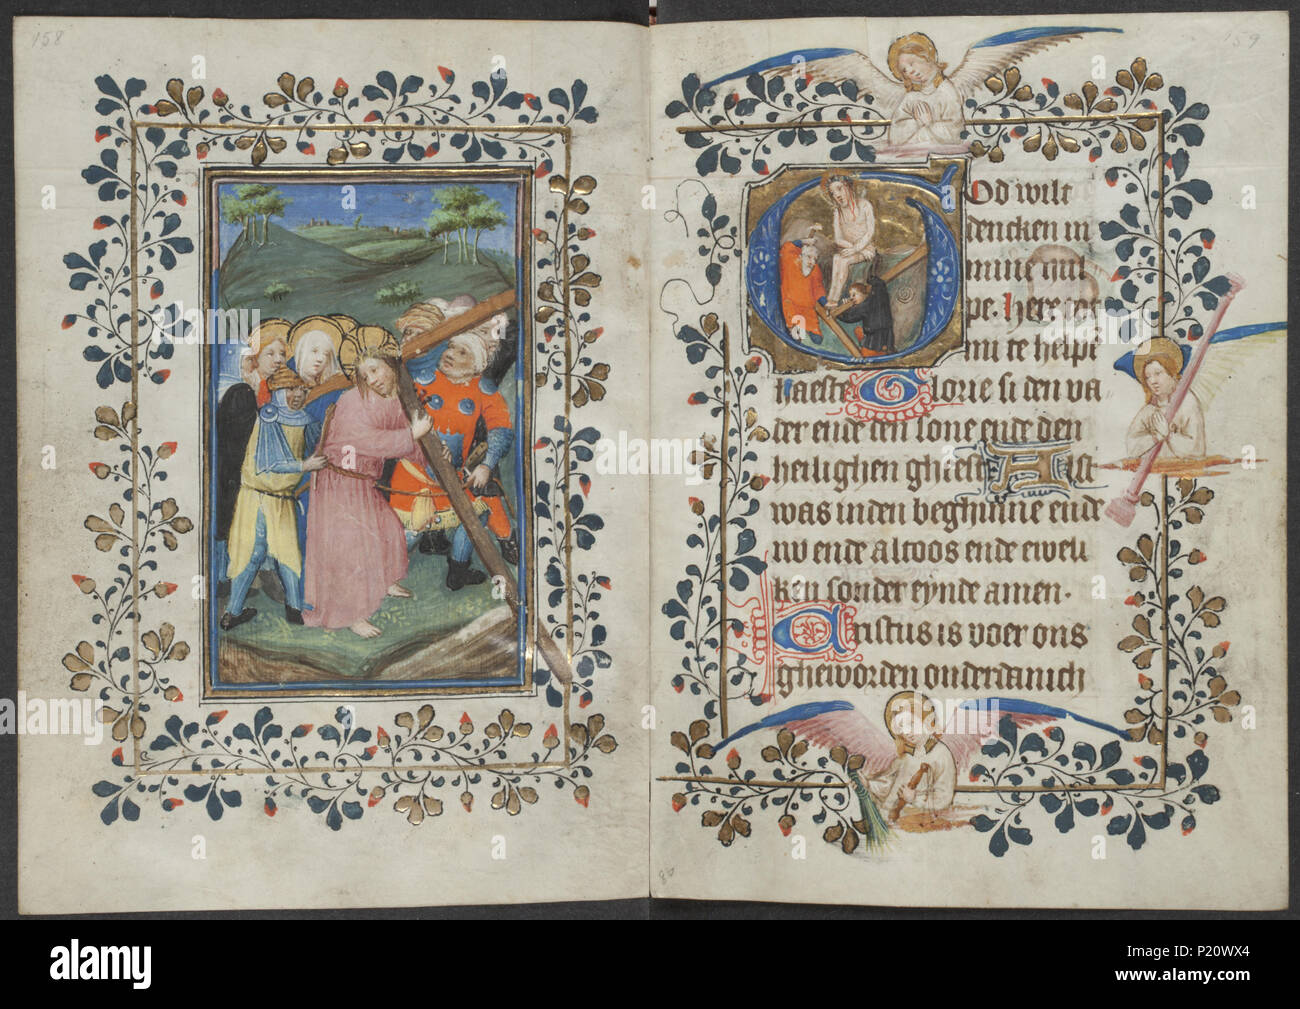 158
159
God wilt
dencken in
mine hul
pe. Here tot
mi te helpē
haeste Glorie si den va
der ende den sone ende den
heilighen ghaeste Alst
was inden beghinne ende
nv ende altoos ende eweli
ken sonder eynde amen.
Cristus is voer ons
gheworden onderdanich
80
alamy
a
alamy stock photo
alamy
Image ID: P20WX4
www.alamy.com